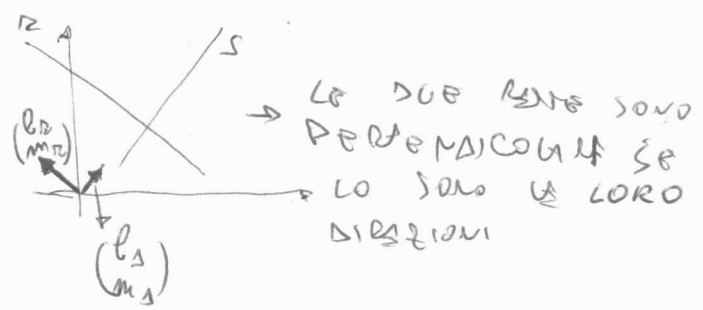 r
s
(l_r
m_r)
→ LE DUE RETTE SONO
PERPENDICOLARI SE
LO SONO LE LORO
DIREZIONI
(l_s
m_s)